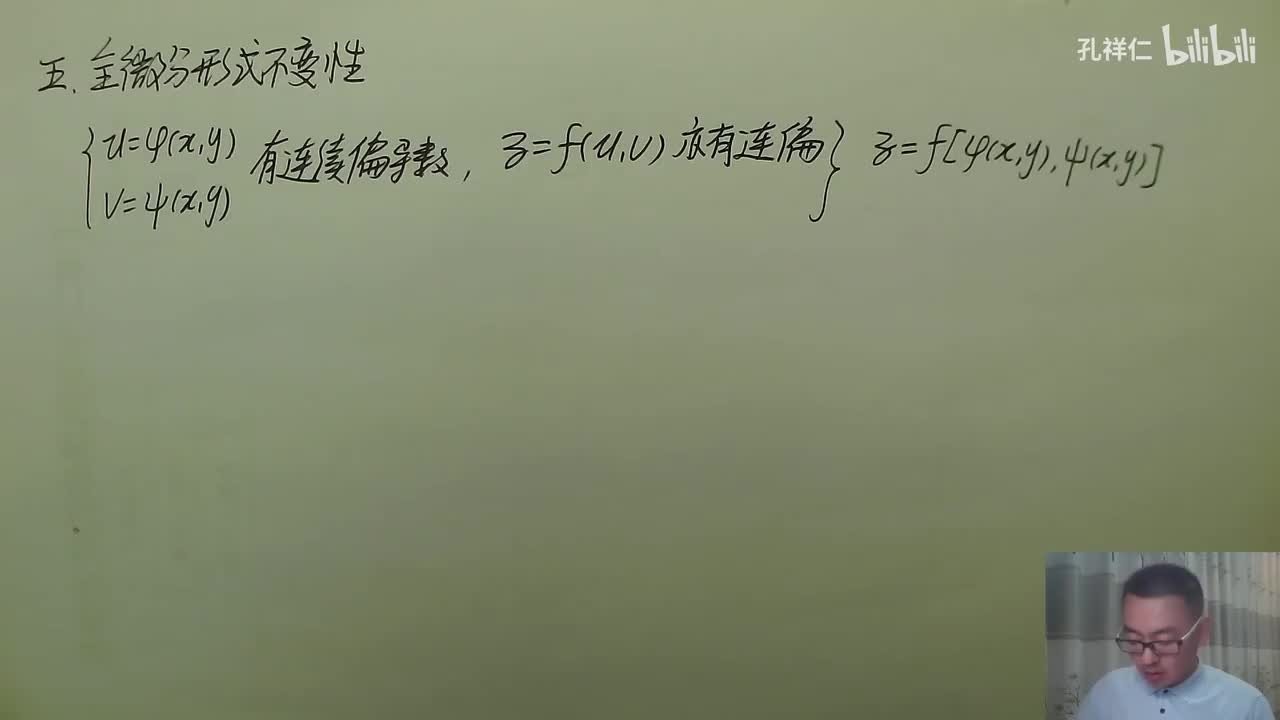 孔祥仁 bilibili
五、全微分形式不变性
{ u=φ(x,y) 有连续偏导数, z=f(u,v) 亦有连偏 } z=f[φ(x,y),ψ(x,y)]
v=ψ(x,y)